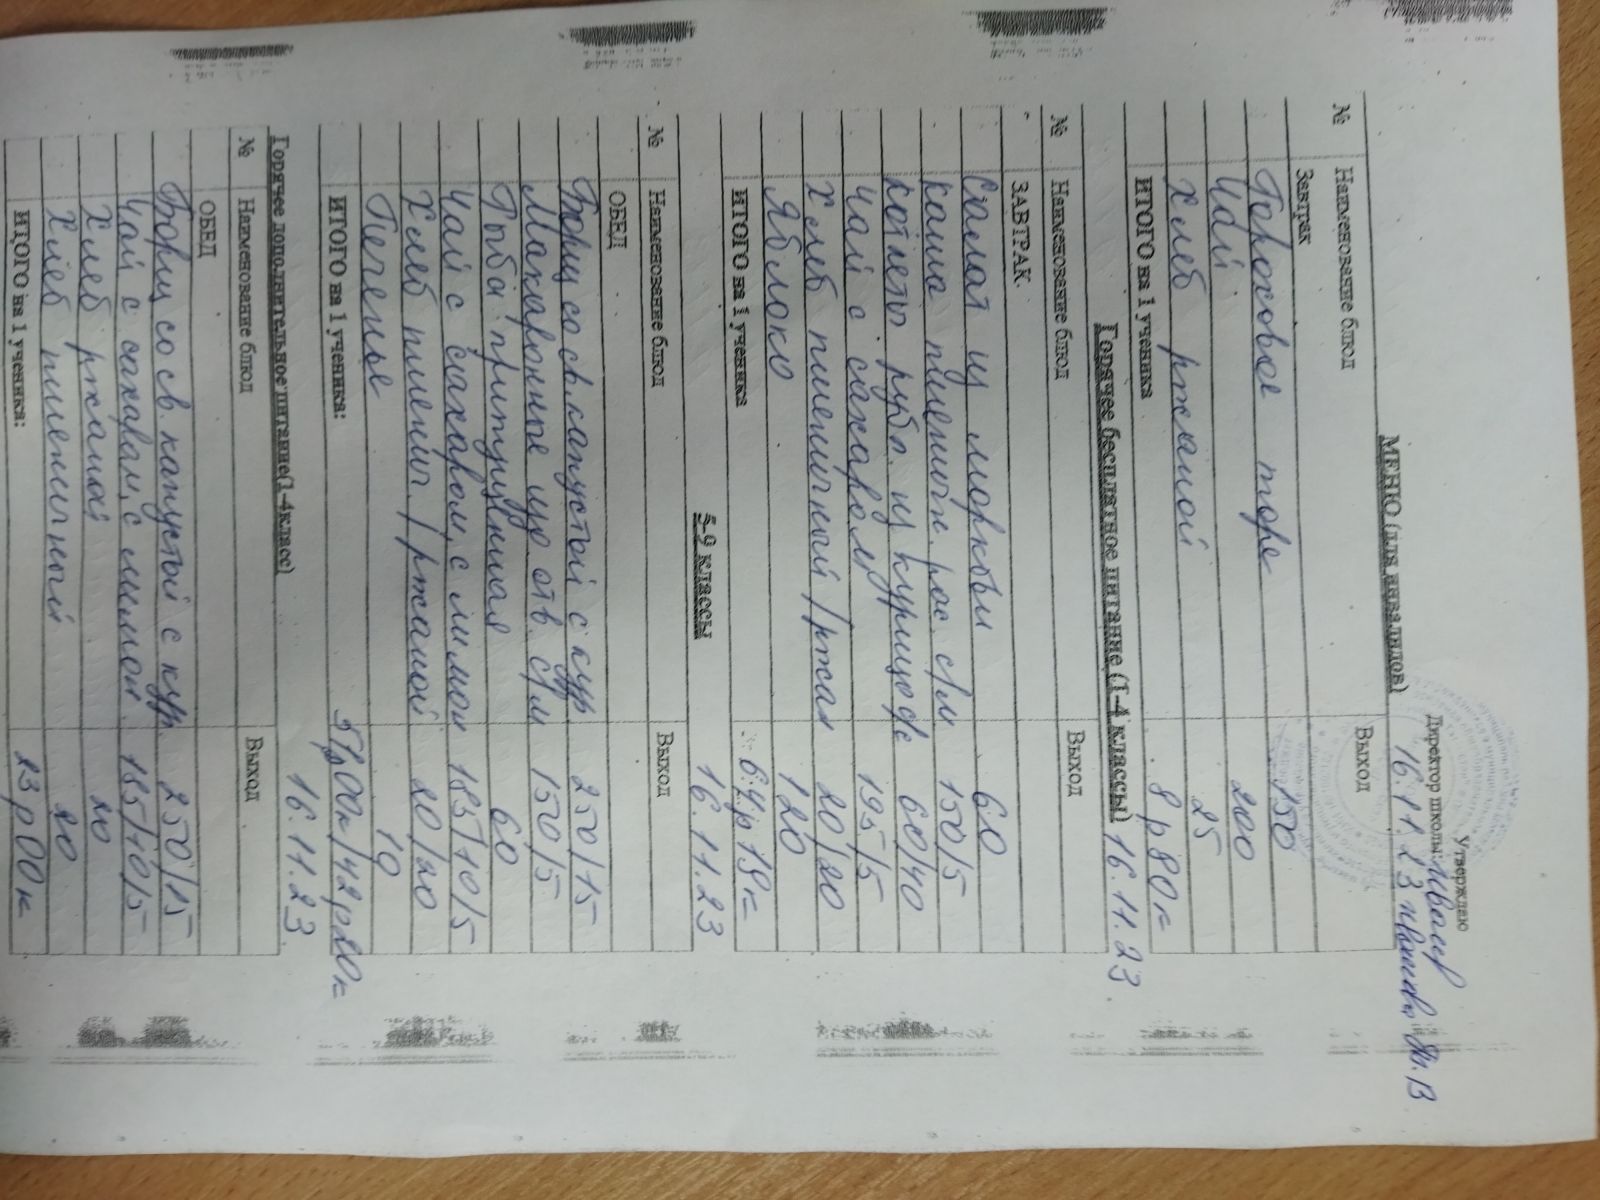 Утверждаю
Директор школы:
16.11.23
МЕНЮ (для инвалидов)
№ Наименование блюд Выход
Завтрак
Гороховое пюре 150
Чай 200
Хлеб ржаной 25
ИТОГО на 1 ученика 8р80к
Горячее бесплатное питание (1-4 классы) 16.11.23
№ Наименование блюд Выход
ЗАВТРАК
Салат из моркови 60
Каша пшеничн. рас. с/м 150/5
Котлеты рубл. из курицы 60/40
Чай с сахаром 195/5
Хлеб пшеничный/ржан 20/20
Яблоко 120
ИТОГО на 1 ученика 64р19к
5-9 классы 16.11.23
№ Наименование блюд Выход
ОБЕД
Борщ со св. капустой с кур 250/15
Макаронные изд. отв. с/м 150/5
Рыба припущенная 60
Чай с сахаром, с лимон 185/10/5
Хлеб пшенич./ржаной 20/20
Печенье 10
ИТОГО на 1 ученика: 51р00к/42р20к
Горячее дополнительное питание(1-4класс) 16.11.23
№ Наименование блюд Выход
ОБЕД
Борщ со св. капустой с кур. 250/15
Чай с сахаром, с лимон. 185/10/5
Хлеб ржаной 20
Хлеб пшеничный 20
ИТОГО на 1 ученика: 23р00к